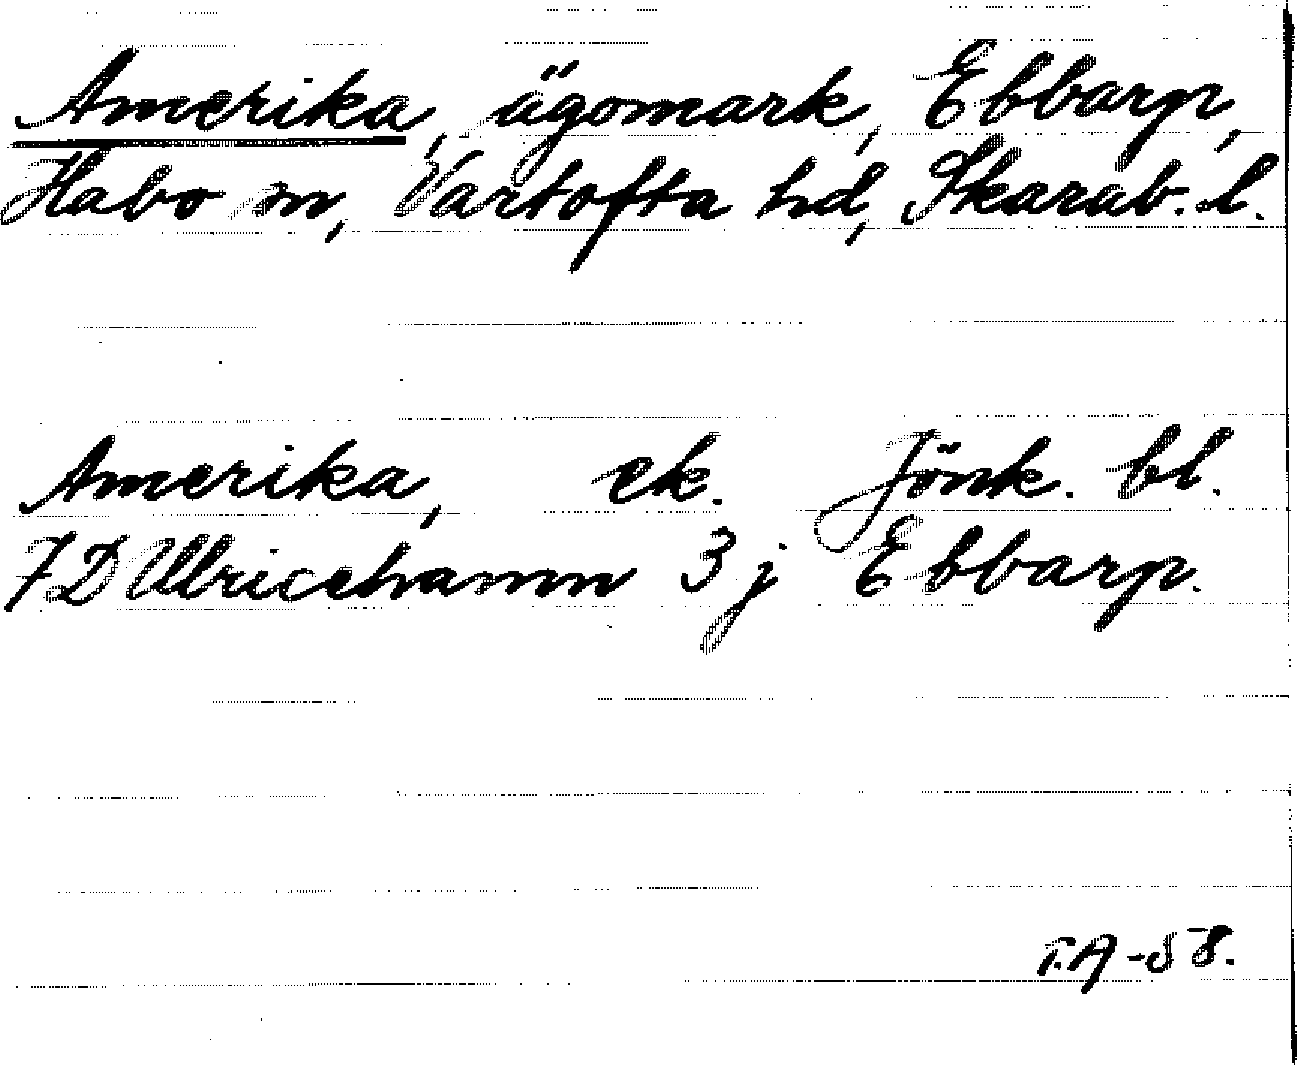 Amerika, ägomark, Ebbarp,
Habo sn, Vartofta hd, Skarab. l.
Amerika, ek. Jönk. bl.
7D Ulricehamn 3j Ebbarp.
T.A-58.